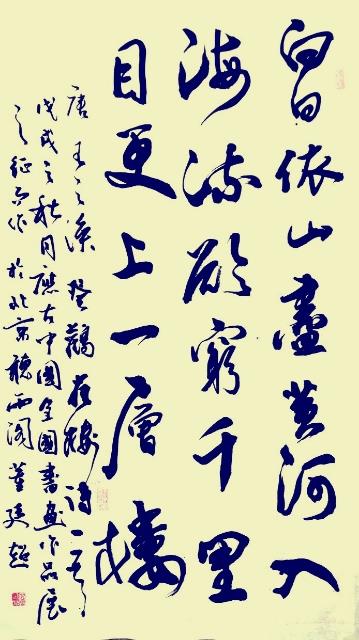 白日依山盡黄河入
海流欲窮千里
目更上一層樓
唐王之渙登鸛雀樓詩一首
戊戌之秋月應古中國全國書畫作品展
之征而作於北京聽雨閣董延超